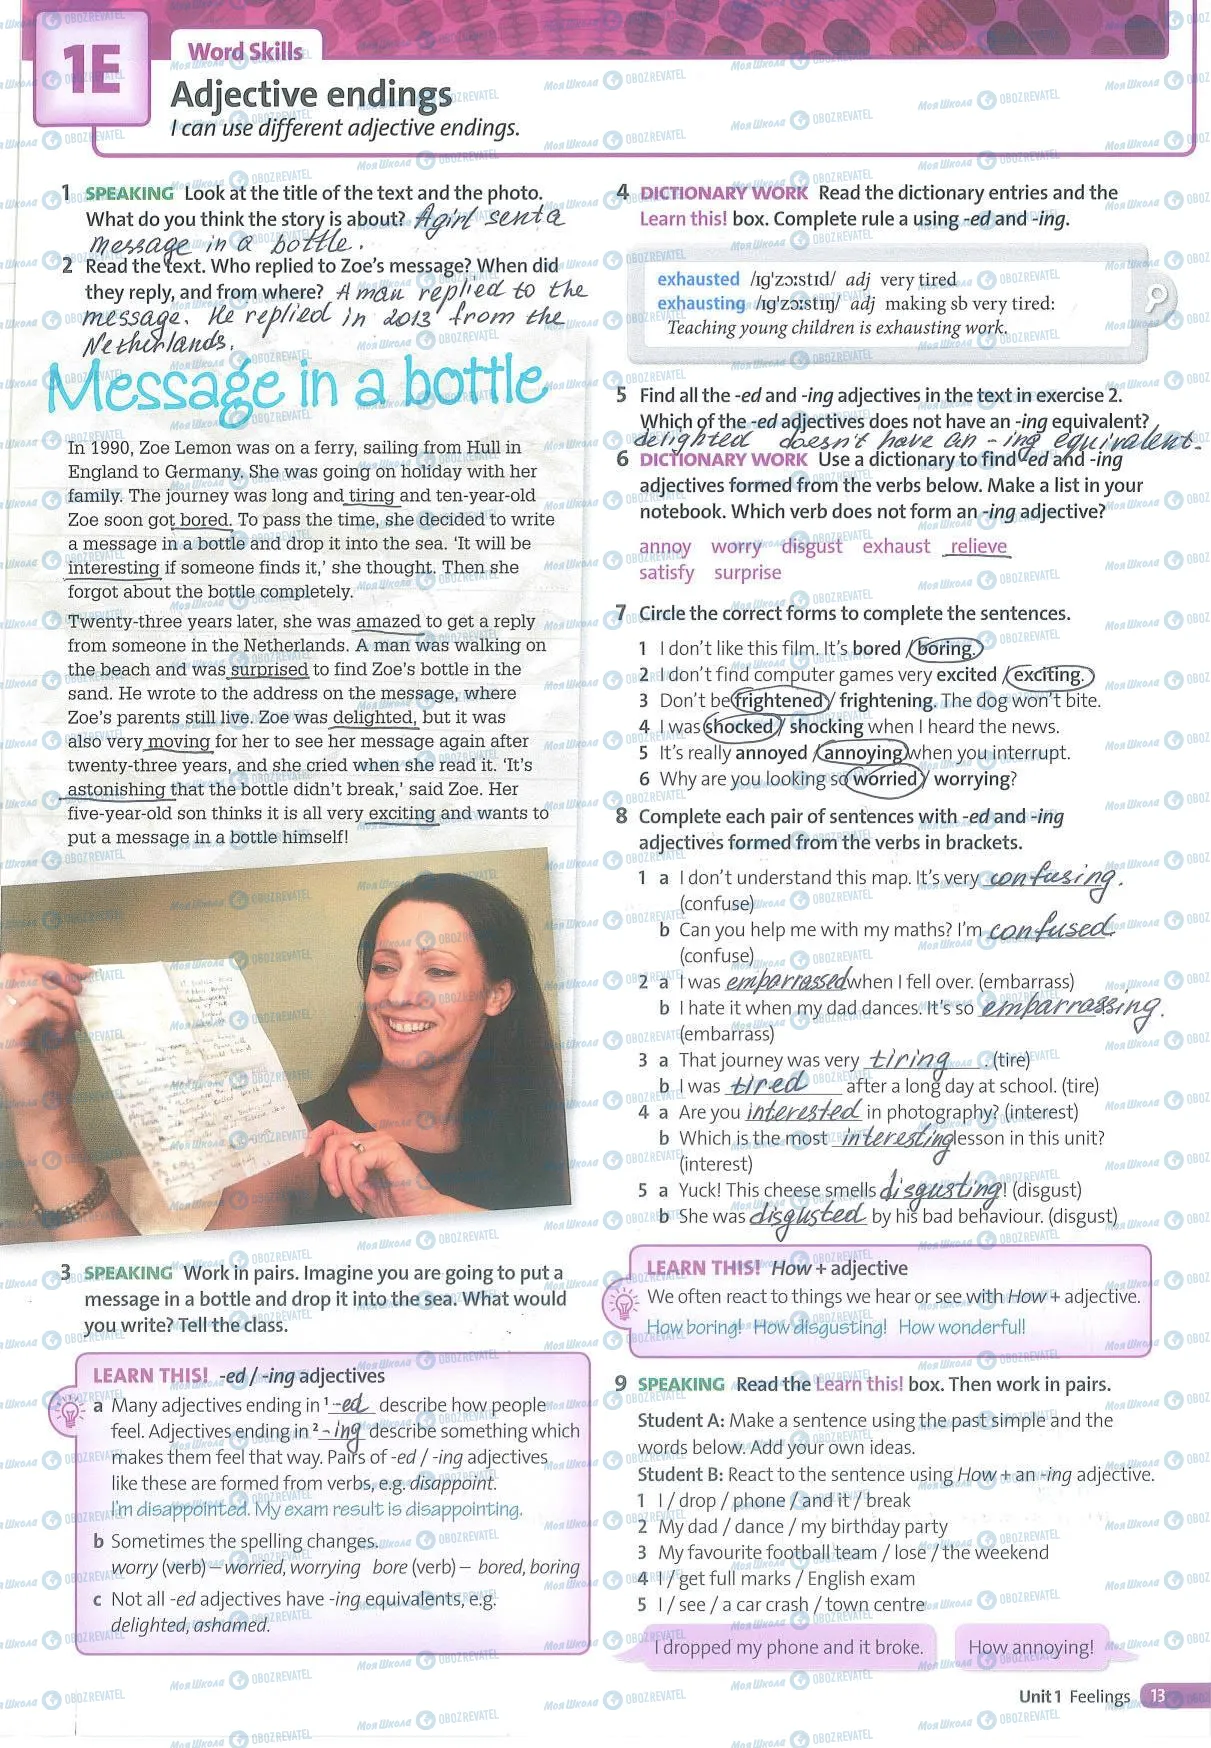 1E
Word Skills
Adjective endings
I can use different adjective endings.
1 SPEAKING Look at the title of the text and the photo.
What do you think the story is about? A girl sent a
message in a bottle.
2 Read the text. Who replied to Zoe's message? When did
they reply, and from where? A man replied to the
message. He replied in 2013 from the
Netherlands.
Message in a bottle
In 1990, Zoe Lemon was on a ferry, sailing from Hull in
England to Germany. She was going on holiday with her
family. The journey was long and tiring and ten-year-old
Zoe soon got bored. To pass the time, she decided to write
a message in a bottle and drop it into the sea. 'It will be
interesting if someone finds it,' she thought. Then she
forgot about the bottle completely.
Twenty-three years later, she was amazed to get a reply
from someone in the Netherlands. A man was walking on
the beach and was surprised to find Zoe's bottle in the
sand. He wrote to the address on the message, where
Zoe's parents still live. Zoe was delighted, but it was
also very moving for her to see her message again after
twenty-three years, and she cried when she read it. 'It's
astonishing that the bottle didn't break,' said Zoe. Her
five-year-old son thinks it is all very exciting and wants to
put a message in a bottle himself!
3 SPEAKING Work in pairs. Imagine you are going to put a
message in a bottle and drop it into the sea. What would
you write? Tell the class.
LEARN THIS! -ed / -ing adjectives
a Many adjectives ending in 1 -ed describe how people
feel. Adjectives ending in 2 -ing describe something which
makes them feel that way. Pairs of -ed / -ing adjectives
like these are formed from verbs, e.g. disappoint.
I'm disappointed. My exam result is disappointing.
b Sometimes the spelling changes.
worry (verb) – worried, worrying bore (verb) – bored, boring
c Not all -ed adjectives have -ing equivalents, e.g.
delighted, ashamed.
4 DICTIONARY WORK Read the dictionary entries and the
Learn this! box. Complete rule a using -ed and -ing.
exhausted /ɪɡˈzɔːstɪd/ adj very tired
exhausting /ɪɡˈzɔːstɪŋ/ adj making sb very tired:
Teaching young children is exhausting work.
5 Find all the -ed and -ing adjectives in the text in exercise 2.
Which of the -ed adjectives does not have an -ing equivalent?
delighted doesn't have an -ing equivalent.
6 DICTIONARY WORK Use a dictionary to find -ed and -ing
adjectives formed from the verbs below. Make a list in your
notebook. Which verb does not form an -ing adjective?
annoy worry disgust exhaust relieve
satisfy surprise
7 Circle the correct forms to complete the sentences.
1 I don't like this film. It's bored / boring.
2 I don't find computer games very excited / exciting.
3 Don't be frightened / frightening. The dog won't bite.
4 I was shocked / shocking when I heard the news.
5 It's really annoyed / annoying when you interrupt.
6 Why are you looking so worried / worrying?
8 Complete each pair of sentences with -ed and -ing
adjectives formed from the verbs in brackets.
1 a I don't understand this map. It's very confusing.
(confuse)
b Can you help me with my maths? I'm confused.
(confuse)
2 a I was embarrassed when I fell over. (embarrass)
b I hate it when my dad dances. It's so embarrassing.
(embarrass)
3 a That journey was very tiring. (tire)
b I was tired after a long day at school. (tire)
4 a Are you interested in photography? (interest)
b Which is the most interesting lesson in this unit?
(interest)
5 a Yuck! This cheese smells disgusting! (disgust)
b She was disgusted by his bad behaviour. (disgust)
LEARN THIS! How + adjective
We often react to things we hear or see with How + adjective.
How boring! How disgusting! How wonderful!
9 SPEAKING Read the Learn this! box. Then work in pairs.
Student A: Make a sentence using the past simple and the
words below. Add your own ideas.
Student B: React to the sentence using How + an -ing adjective.
1 I / drop / phone / and it / break
2 My dad / dance / my birthday party
3 My favourite football team / lose / the weekend
4 I / get full marks / English exam
5 I / see / a car crash / town centre
I dropped my phone and it broke.
How annoying!
Unit 1 Feelings 13
МояШкола OBOZREVATEL